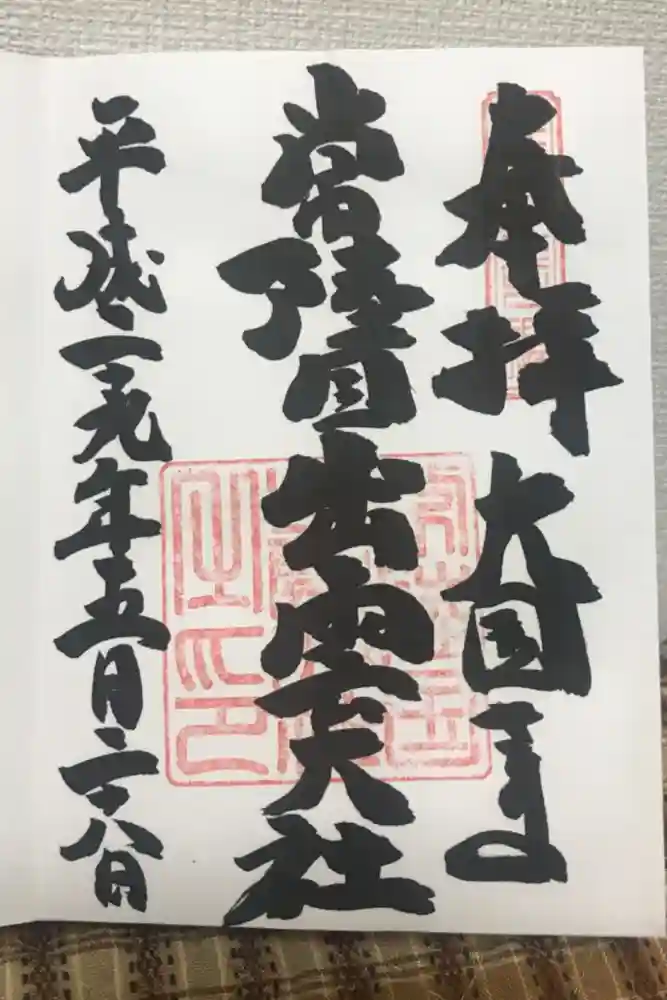 奉拝 大国主
常陸国出雲大社
平成二十九年五月二十八日